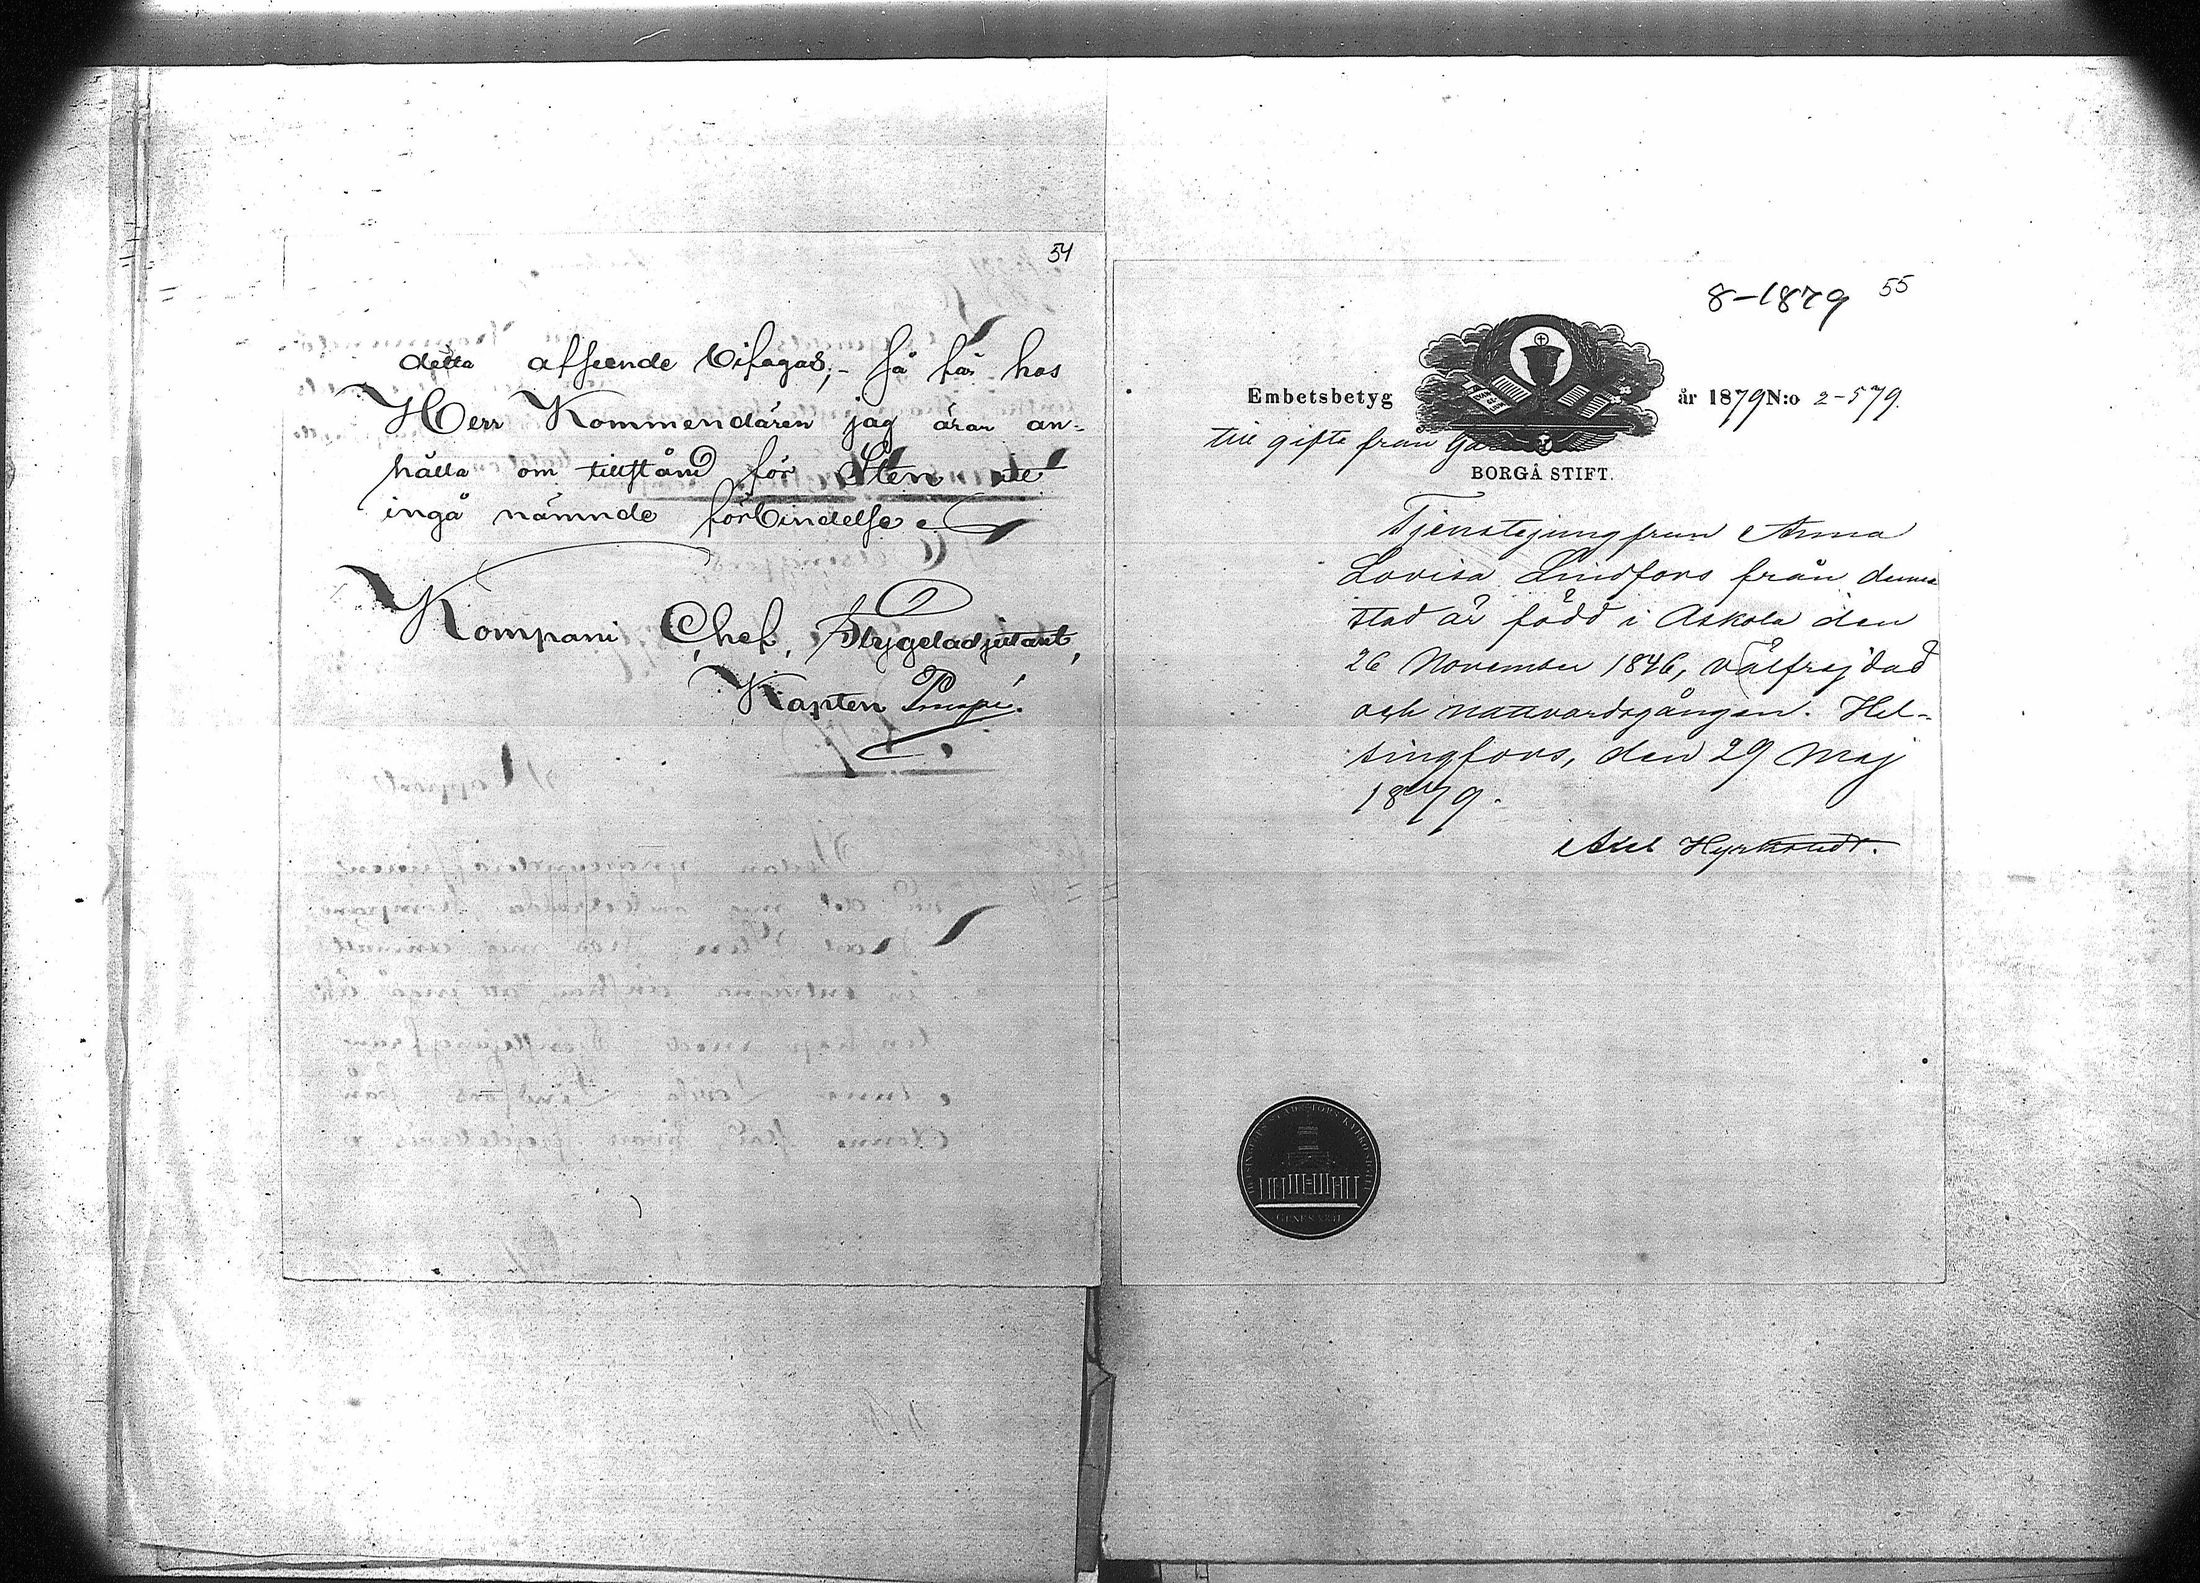 54
detta afseende bifogas; – så får hos
Herr Kommendören jag äran an=
hålla om tillstånd för Sten att
ingå nämnde förbindelse.
Kompani Chef, Flygeladjutant,
Kapten
8–1879 55
Embetsbetyg år 1879 N:o 2–579.
till gifte från
BORGÅ STIFT.
Tjenstejungfrun Anna
Lovisa Lindfors från denna
stad är född i Askola den
26 November 1846, välfrejdad
och nattvardsgången. Hel-
singfors, den 29 Maj
1879.
Axel